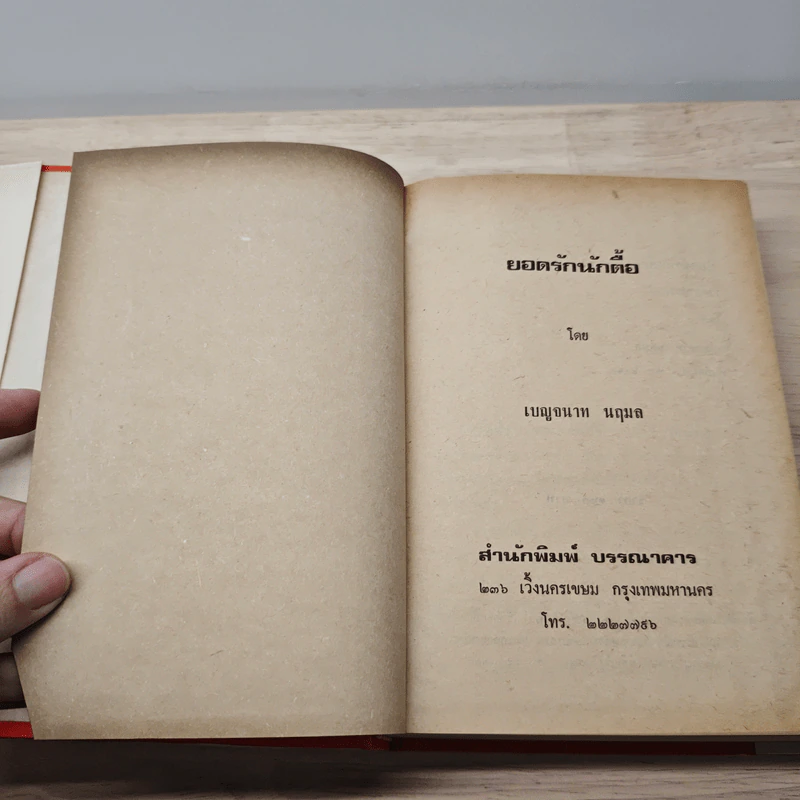 ยอดรักนักตื้อ
โดย
เบญจนาท นฤมล
สำนักพิมพ์ บรรณาคาร
๒๓๖ เวิ้งนครเขษม กรุงเทพมหานคร
โทร. ๒๒๒๗๗๙๖